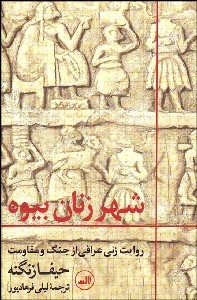 شهر زنان بیوه
روایت زنی عراقی از جنگ و مقاومت
حیفا زنگنه
ترجمهٔ لیلی فرهادپور